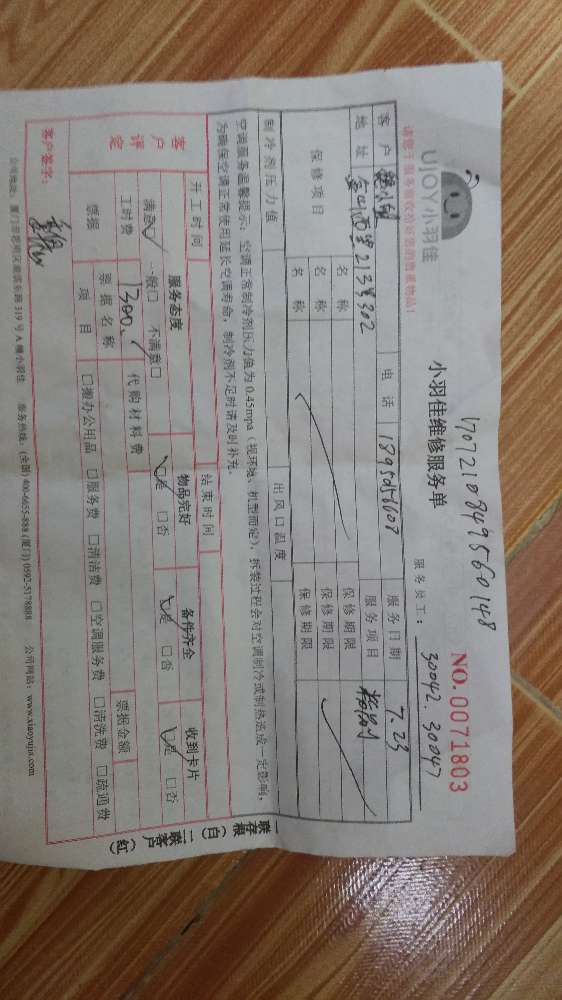 1707210849560148
UJOY小羽佳
小羽佳维修服务单
NO.0071803
请您于服务验收前
服务员工：30042.30047
客户
电话 18950156607
服务日期 7.23
地址 金山西里213号302
服务项目
保修项目
名称
保修期限
名称
保修期限
名称
保修期限
制冷剂压力值
出风口温度
空调服务温馨提示：空调正常制冷剂压力值为0.45mpa（视环境、机型而定），拆装过程会对空调制冷或制热造成一定影响，
为确保空调正常使用延长空调寿命，制冷剂不足时请及时补充。
开工时间
结束时间
客户评定
服务态度
物品完好
备件齐全
收到卡片
满意☑ 一般□ 不满意□
☑是 □否
☑是 □否
☑是 □否
工时费 1300.
代购材料费
票据金额
票据
票据名称
项目
□搬办公用品 □服务费 □清洁费 □空调服务费 □清洗费 □疏通费
客户签字：
公司地址：厦门市思明区莲滨东路319号A幢小羽佳 服务热线：(全国) 400-6655-888 (厦门) 0592-5178888 公司网站：www.xiaoyujia.com
一联存根（白） 二联客户（红）